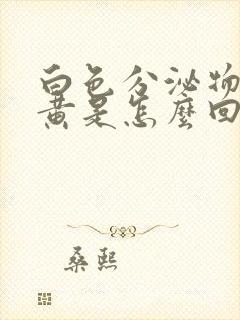 白色分泌物
黄是怎麼回
桑熙